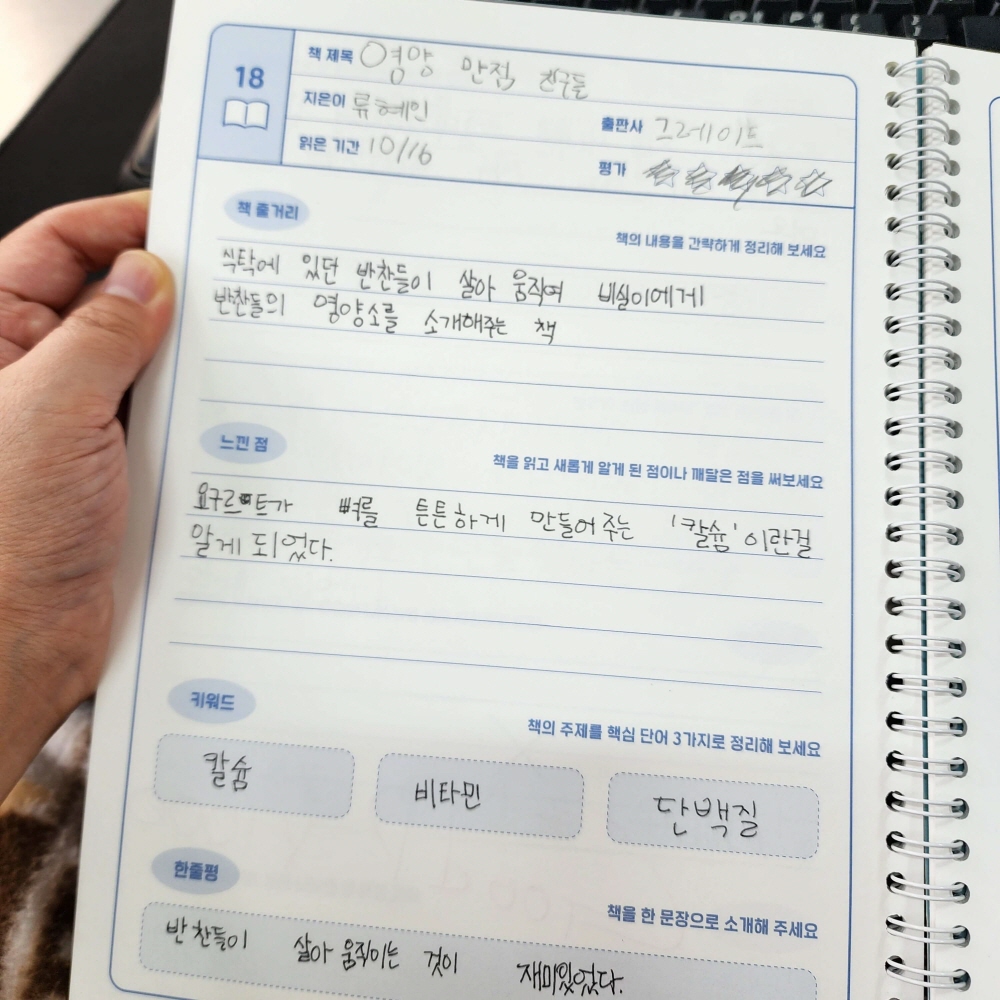 18
책 제목 영양 만점 친구들
지은이 류혜인
출판사 그레이트
읽은 기간 10/16
평가 ☆☆☆☆☆
책 줄거리
책의 내용을 간략하게 정리해 보세요
식탁에 있던 반찬들이 살아 움직여 비실이에게
반찬들의 영양소를 소개해주는 책
느낀 점
책을 읽고 새롭게 알게 된 점이나 깨달은 점을 써보세요
요구르트가 뼈를 튼튼하게 만들어주는 '칼슘'이란걸
알게 되었다.
키워드
책의 주제를 핵심 단어 3가지로 정리해 보세요
칼슘
비타민
단백질
한줄평
책을 한 문장으로 소개해 주세요
반찬들이 살아 움직이는 것이 재미있었다.